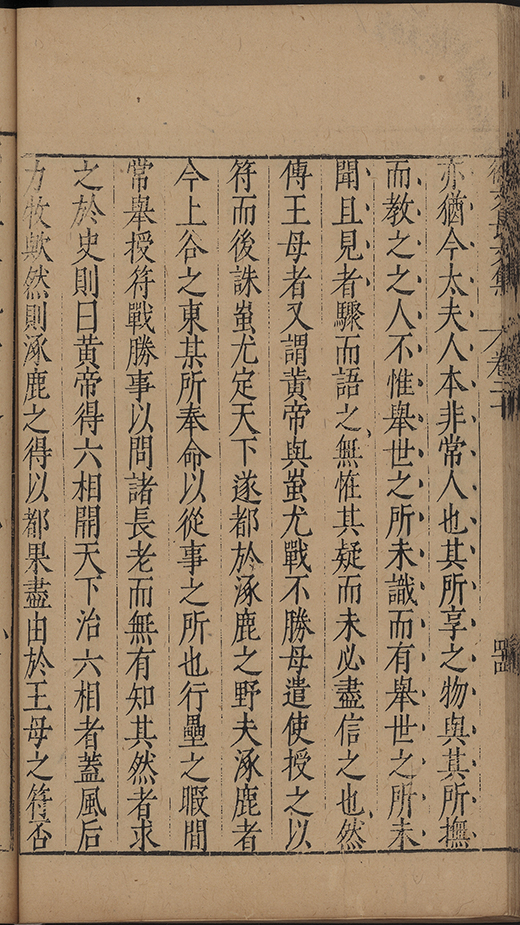 亦猶今太夫人本非常人也其所享之物與其所撫
而教之之人不惟舉世之所未識而有舉世之所未
聞且見者驟而語之、無惟其疑而未必盡信之也、然
傳王母者又謂黃帝與蚩尤戰不勝母遣使授之以
符而後誅蚩尤定天下遂都於涿鹿之野夫涿鹿者
今上谷之東某所奉命以從事之所也行壘之暇間
常舉授符戰勝事以問諸長老而無有知其然者求
之於史則曰黃帝得六相開天下治六相者蓋風后
力牧歟然則涿鹿之得以都果盡由於王母之符否
卷二十